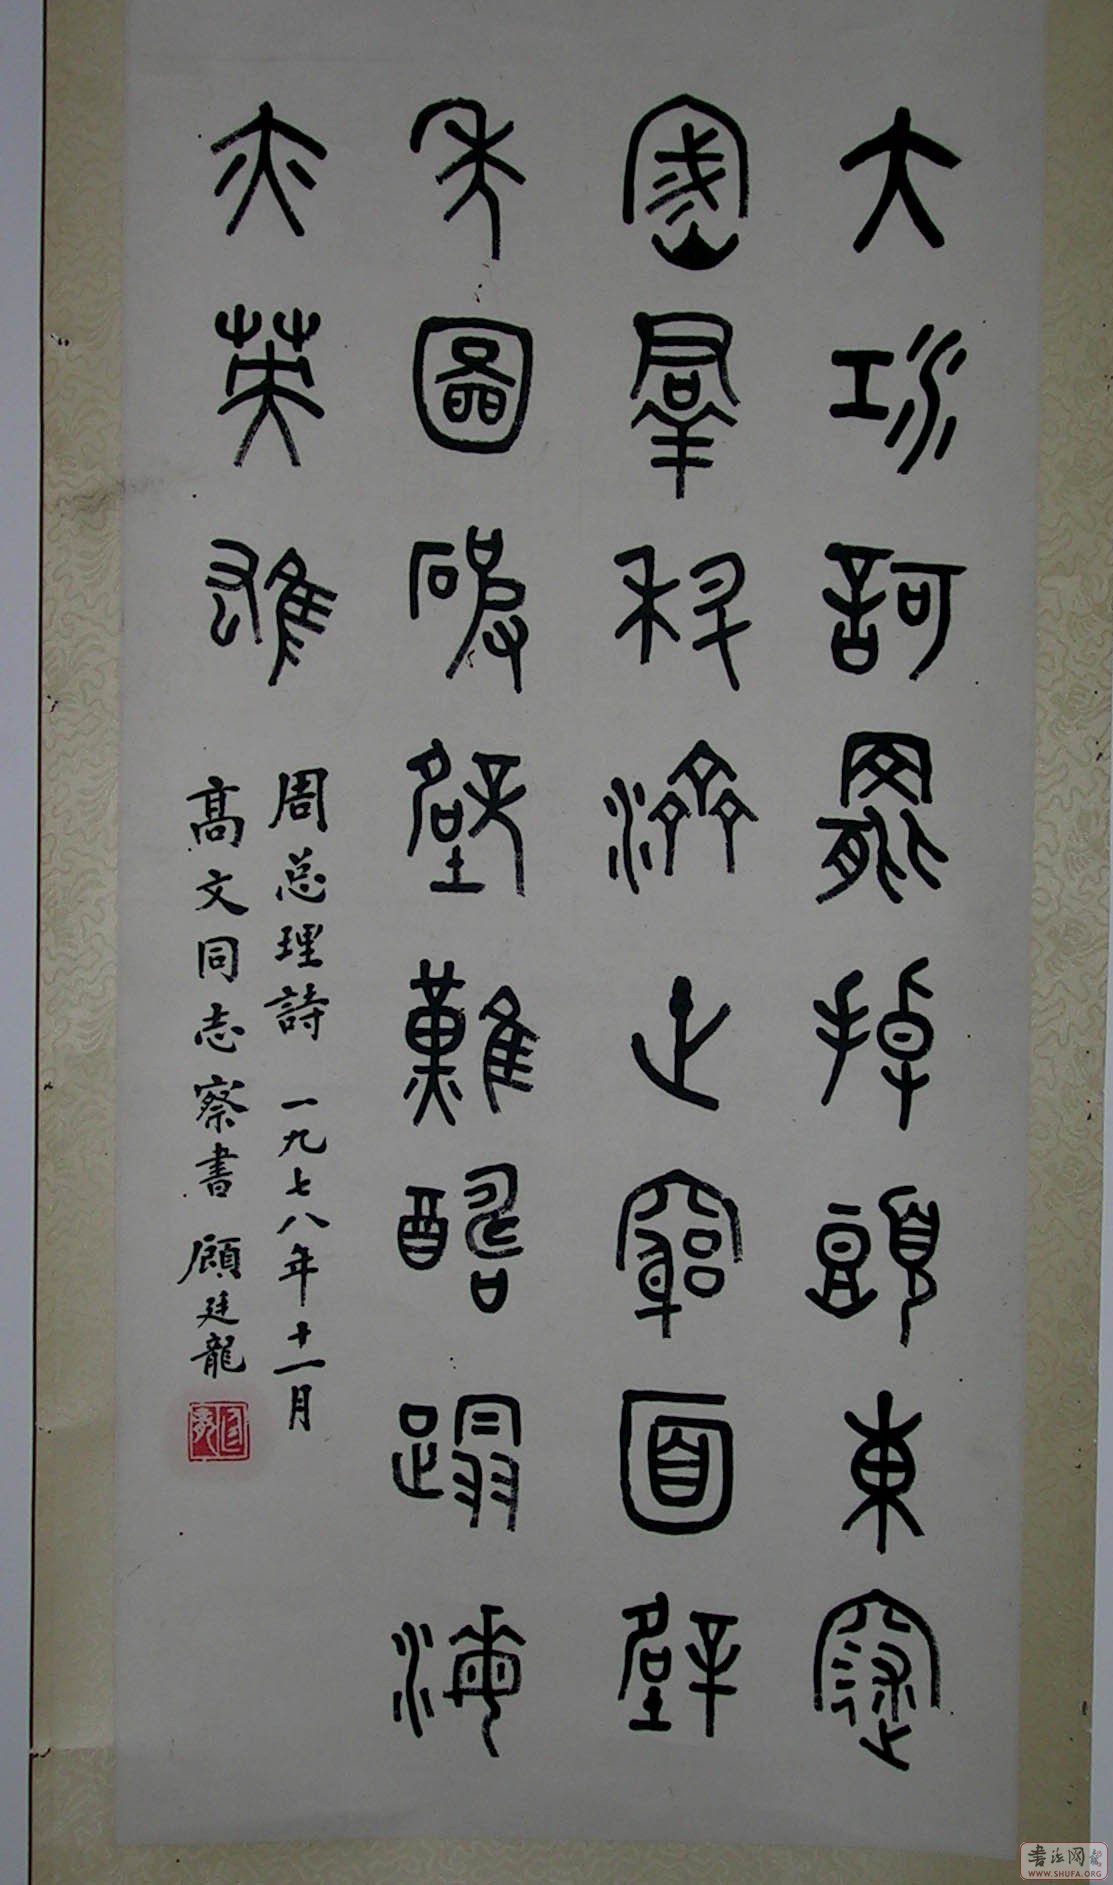 大江訶罷掉頭東邃
密群科濟世窮面壁
年圖破壁難酬蹈海
亦英雄
周总理詩 一九七八年十一月
高文同志察書 顧廷龍
書法网
WWW.SHUFA.ORG